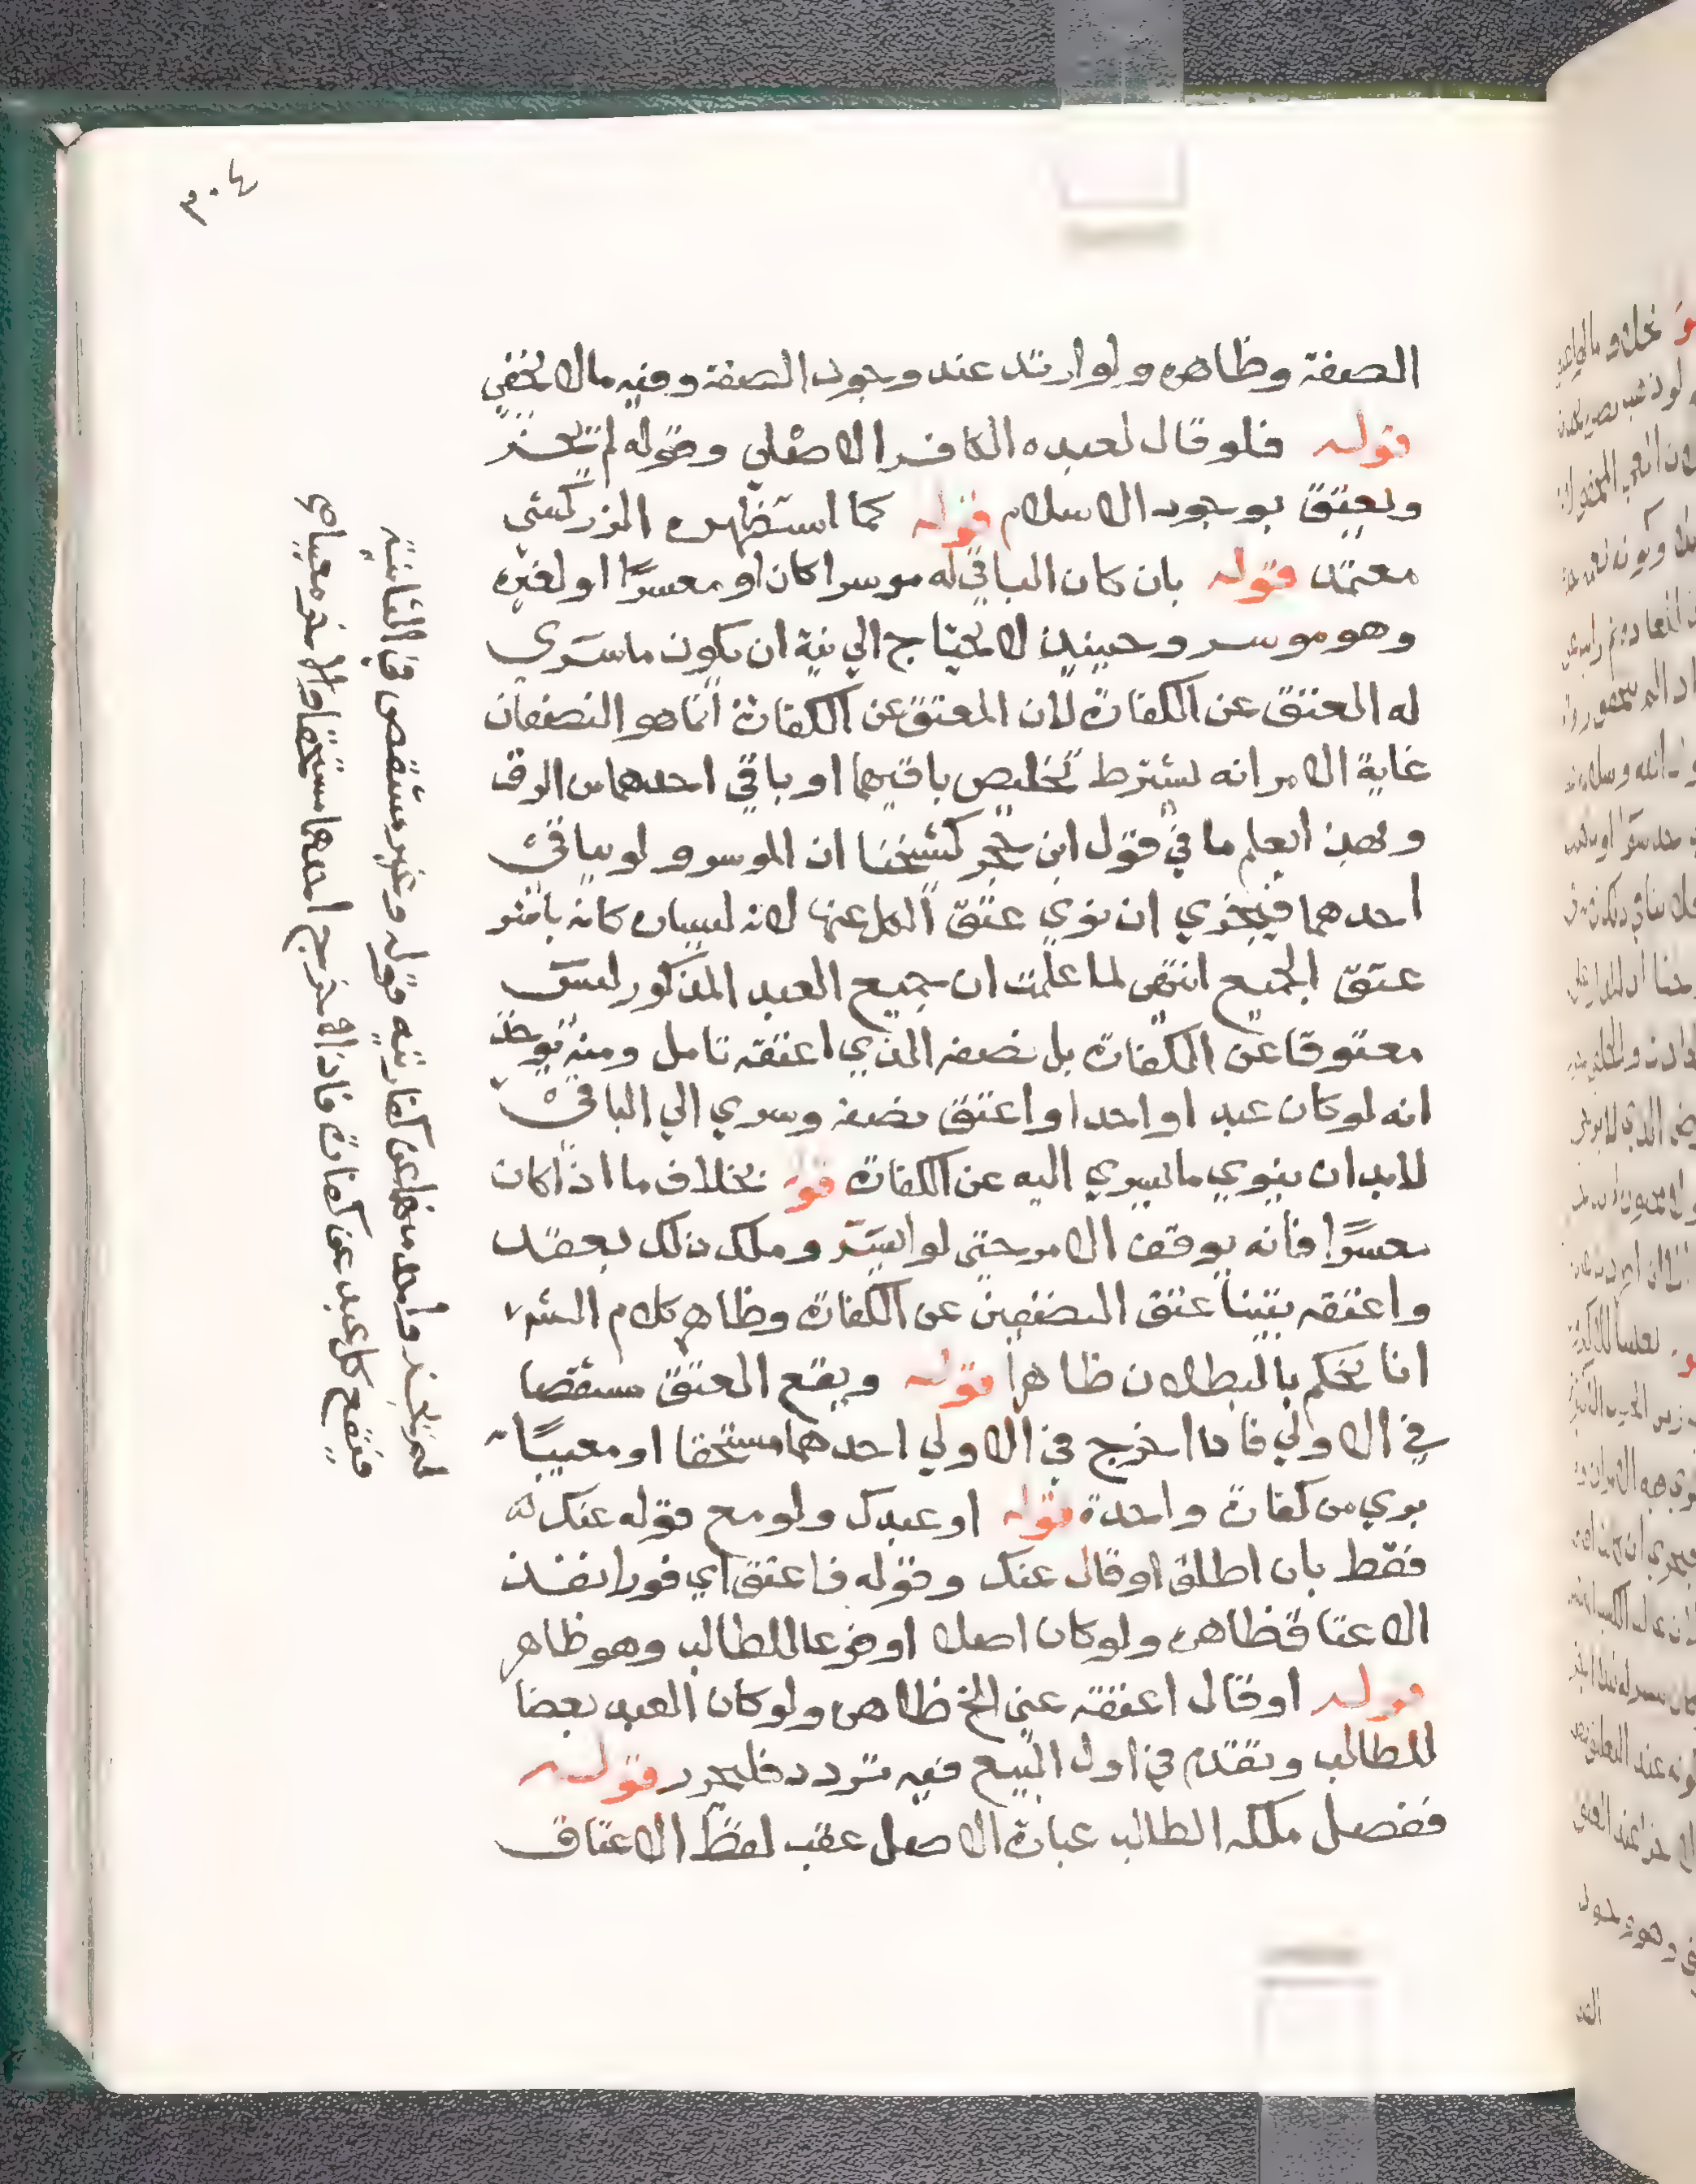 ٣٠٤
الصفة وظاهره ولو ارتد عند وجود الصفة وفيه مالا يخفي
قوله فلو قال لعبده الكافر الاصلي وقوله لم يجز
ويعتق بوجود الاسلام قوله كما استظهره الزركشي
معتمد قوله بان كان الباقي له موسرا كان او معسرًا او لغيره
وهو موسر وحينيذ لا يحتاج الي نية ان يكون ما سري
له العتق عن الكفارة لان المعتق عن الكفارة انما هو النصفان
غاية الامر انه يشترط تخليص باقيهما او باقي احدهما من الرق
وبهذا يعلم ما في قول ابن حجر كشيخنا ان الموسر ولو بباقي
احدهما فيجزي ان نوي عتق الكل عنها لانه ليساره كانه باشر
عتق الجميع انتهي لما علمت ان جميع العبد المذكور ليس
معتوقا عن الكفارة بل نصفه الذي اعتقه تامل ومنه يوخذ
انه لو كان عبدا واحدا واعتق نصفه وسري الي الباقي
لابد ان ينوي ما يسري اليه عن الكفارة قوله بخلاف ما اذا كان
معسرًا فانه يوقف الامر حتي لو ايسر وملك ذلك بعقد
واعتقه تبينا عتق النصفين عن الكفارة وظاهر كلام الشر
انا نحكم بالبطلان ظاهرا قوله ويقع العتق مشقصا
في الاولي فاذا اخرج في الاولي احدهما مستحقا او معيبًا
بري من كفارة واحدة قوله او عبدك ولو مع قوله عنك
فقط بان اطلق او قال عنك وقوله فاعتق اي فورا نفذ
الاعتاق ظاهره ولو كان اصلا او فرعا للطالب وهو ظاهر
قوله او قال اعتقه عني الخ ظاهره ولو كان العبد بعضا
للطالب وتقدم في اول البيع فيه تردد فليحرر قوله
ففصل ملكه الطالب عبارة الاصل عقب لفظ الاعتاق
لم يجز واحد منهما عن كفارتيه قوله وغير مشقص في الثانية
فيقع كل عبد عن كفارة فاذا خرج احدهما مستحقا والاخر معيبا